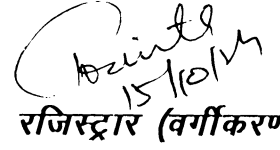 15/10/24
रजिस्ट्रार (वर्गीकरण